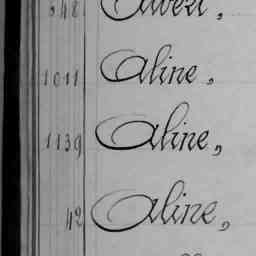 1011 Aline,
1139 Aline,
42 Aline,